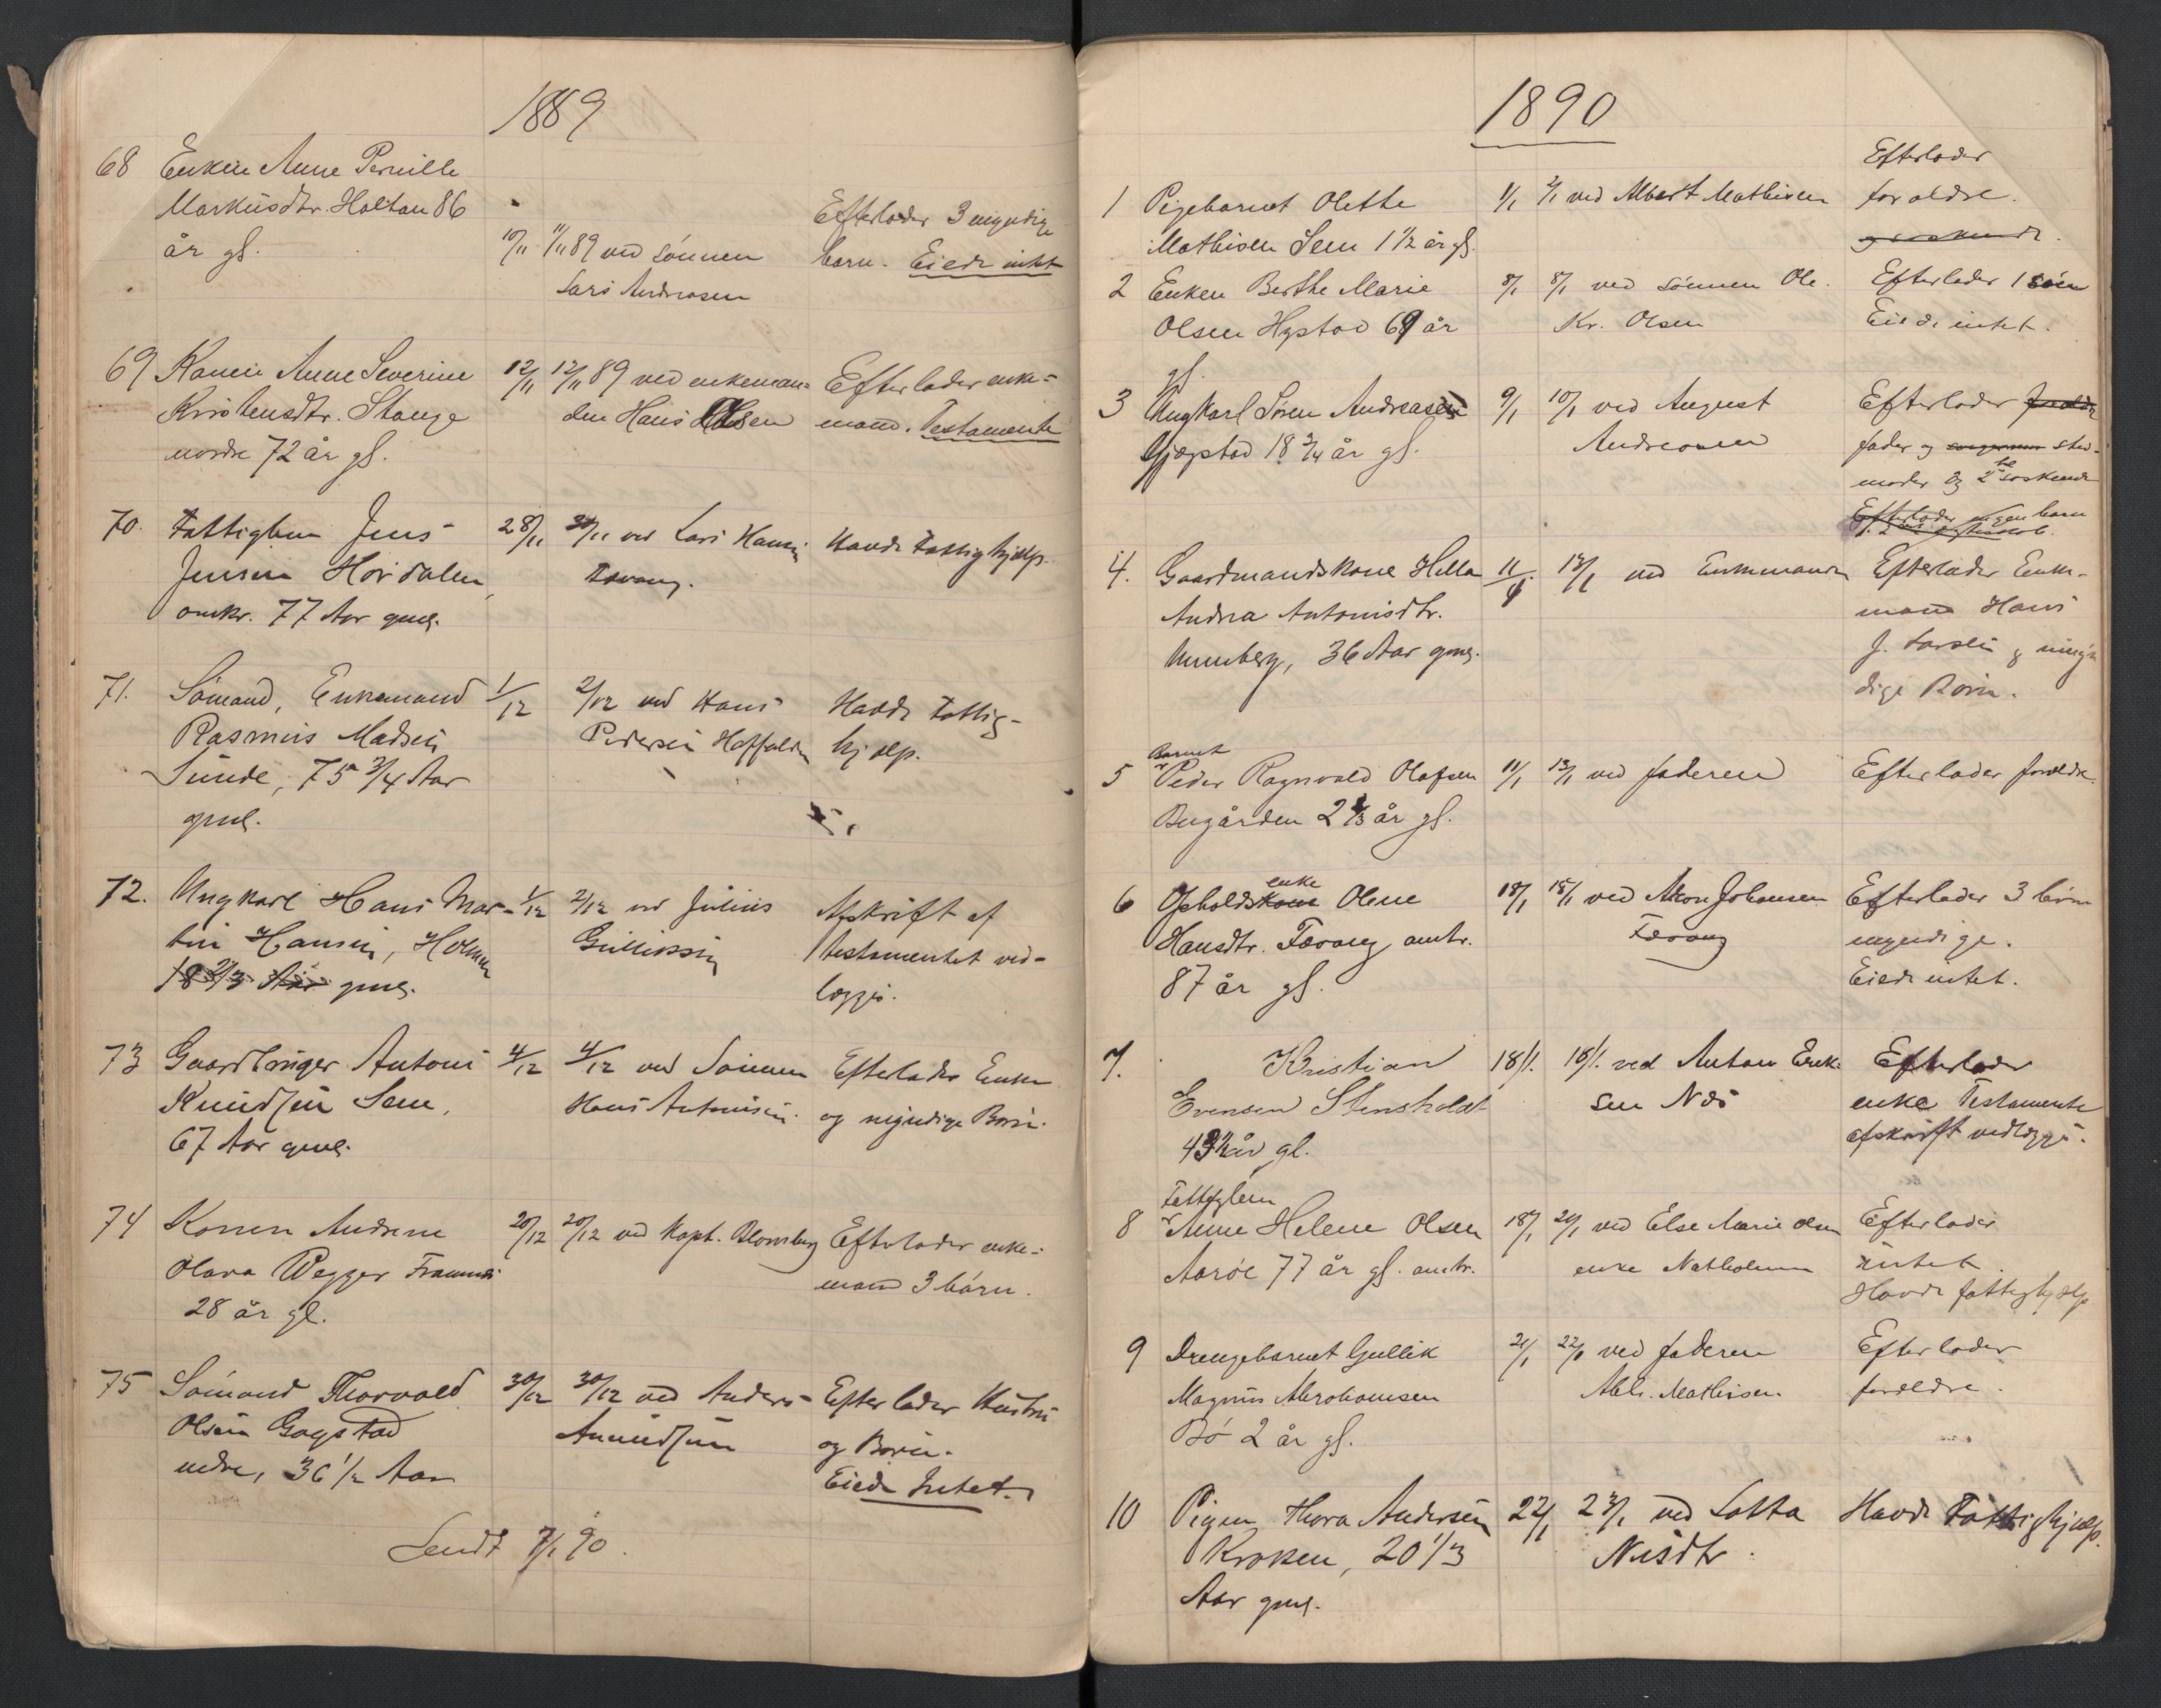 1889
68 Enken Anne Pernille
Markusdtr. Holtan 86
år gl.
10/11 11/11 89 ved sønnen
Lars Andreasen
Efterlader 3 myndige
børn. Eiede intet
69 Konen Anne Severine
Kristensdtr. Stange
nordre 72 år gl.
12/11 12/11 89 ved enkeman-
den Hans Olsen
Efterlader enke-
mand. Testamente
70. Fattiglem Jens
Jensen Hørdalen,
omkr. 77 Aar gml.
28/11 30/11 ved Lars Hansen
Havde Fattighjælp.
71. Sømand, Enkemand
Rasmus Madsen
Sunde, 75 3/4 Aar
gml.
1/12 2/12 ved Hans
Pedersen
Havde Fattig-
hjælp.
72. Ungkarl Hans Mar-
tin Hansen, Holmen
18 2/3 Aar gml.
1/12 2/12 ved Julius
Gulliksen
Afskrift af
testamentet ved-
lægges.
73 Gaardbruger Antoni
Knudsen Sem,
67 Aar gml.
4/12 4/12 ved Sønnen
Hans Antonisen
Efterlader Enke
og myndige Børn.
74 Konen Andrine
Olava Wegger Framnæs
28 år gl.
20/12 20/12 ved Kapt. Blomberg
Efterlader enke-
mand 3 børn.
75 Sømand Thorvald
Olsen Gogstad
nedre, 36 1/2 Aar
30/12 30/12 ved Anders
Amundsen
Efterlader Hustru
og Børn.
Eiede Intet.
Sendt 7/1 90.
1890
1 Pigebarnet Olethe
Mathisen Sem 1 1/2 år gl.
1/1 2/1 ved Albert Mathisen
Efterlader
forældre.
og søskende.
2 Enken Berthe Marie
Olsen Hystad 69 år
gl.
8/1 8/1 ved sønnen Ole
Kr. Olsen
Efterlader 1 søn
Eiede intet.
3 Ungkarl Søren Andreasen
Gjøgstad 18 3/4 år gl.
9/1 10/1 ved August
Andreasen
Efterlader forældre
fader og sted-
moder og 2 hel søskende
Efterlader ingen børn
4. Gaardmandskone Hella
Andrea Antonisdtr.
Unneberg, 36 Aar gml.
11/1 13/1 ved Enkemanden
Efterlader Enke-
mand Hans
J. Larsen og umyn-
dige Børn.
5 Barnet
Peder Ragnvald Olafsen
Bugården 2 1/3 år gl.
11/1 13/1 ved faderen
Efterlader forældre.
6 Opholdskone enke Olene
Hansdtr. Førang, omtr.
87 år gl.
18/1 18/1 ved Aron Johansen
Efterlader 3 børn
myndige.
Eiede intet.
7. Kristian
Evensen Stensholdt
43 1/2 år gl.
18/1. 18/1. ved Anton Erik-
sen Næs
Efterlader
enke Testamente
afskrift vedlægges.
8 Fattiglem
Anne Helene Olsen
Aarøe 77 år gl. omtr.
18/1 20/1 ved Else Marie Olsen
enke Natholmen
Efterlader
intet.
Havde fattighjælp
9 Drengebarnet Gullik
Magnus Abrahamsen
Bø 2 år gl.
21/1 22/1 ved faderen
Abr. Mathisen.
Efterlader
forældre.
10 Pigen Thora Andersen
Kroken, 20 1/3
Aar gml.
22/1 23/1 ved Lotta
Nilsdtr.
Havde Fattighjælp.